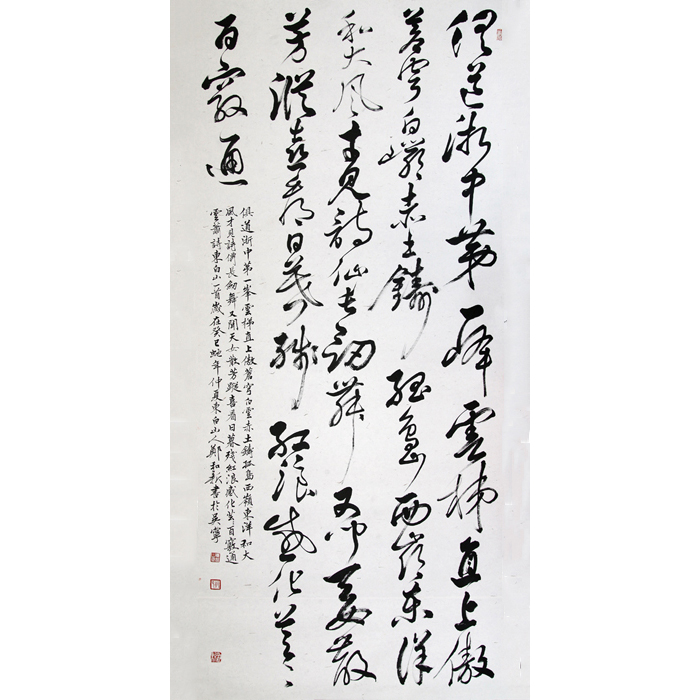 俱道浙中第一峰雲梯直上傲
蒼穹白赤土鑄孤島西嶺東洋
和大風才見詩仙長劍舞又聞天女散
芳蹤喜看日暮殘紅浪感化芸芸
百竅通
俱道浙中第一峯雲梯直上傲蒼穹白雲赤土鑄孤島西嶺東洋和大
風才見詩仙長劍舞又聞天女散芳蹤喜看日暮殘紅浪感化芸百竅通
雲蕭詩東白山一首歲在癸巳蛇年仲夏東白山人鄭和新書於吳寧